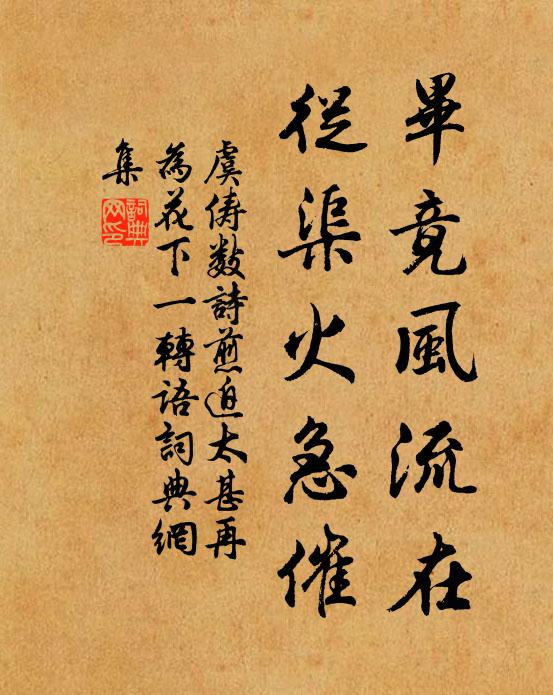 畢竟風流在
從渠火急催
虞儔數詩煎迫太甚再
為花下一轉語詞典網
集
詞典網印